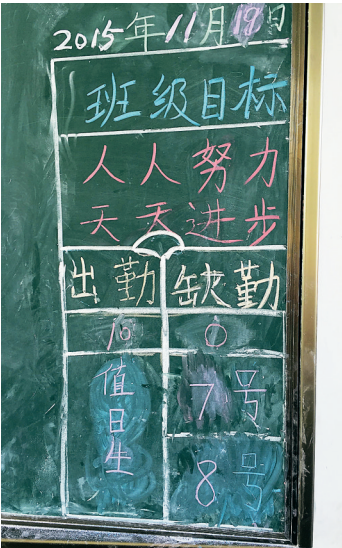 2015年11月19日
班级目标
人人努力
天天进步
出勤 缺勤
10 0
值日生
7号
8号